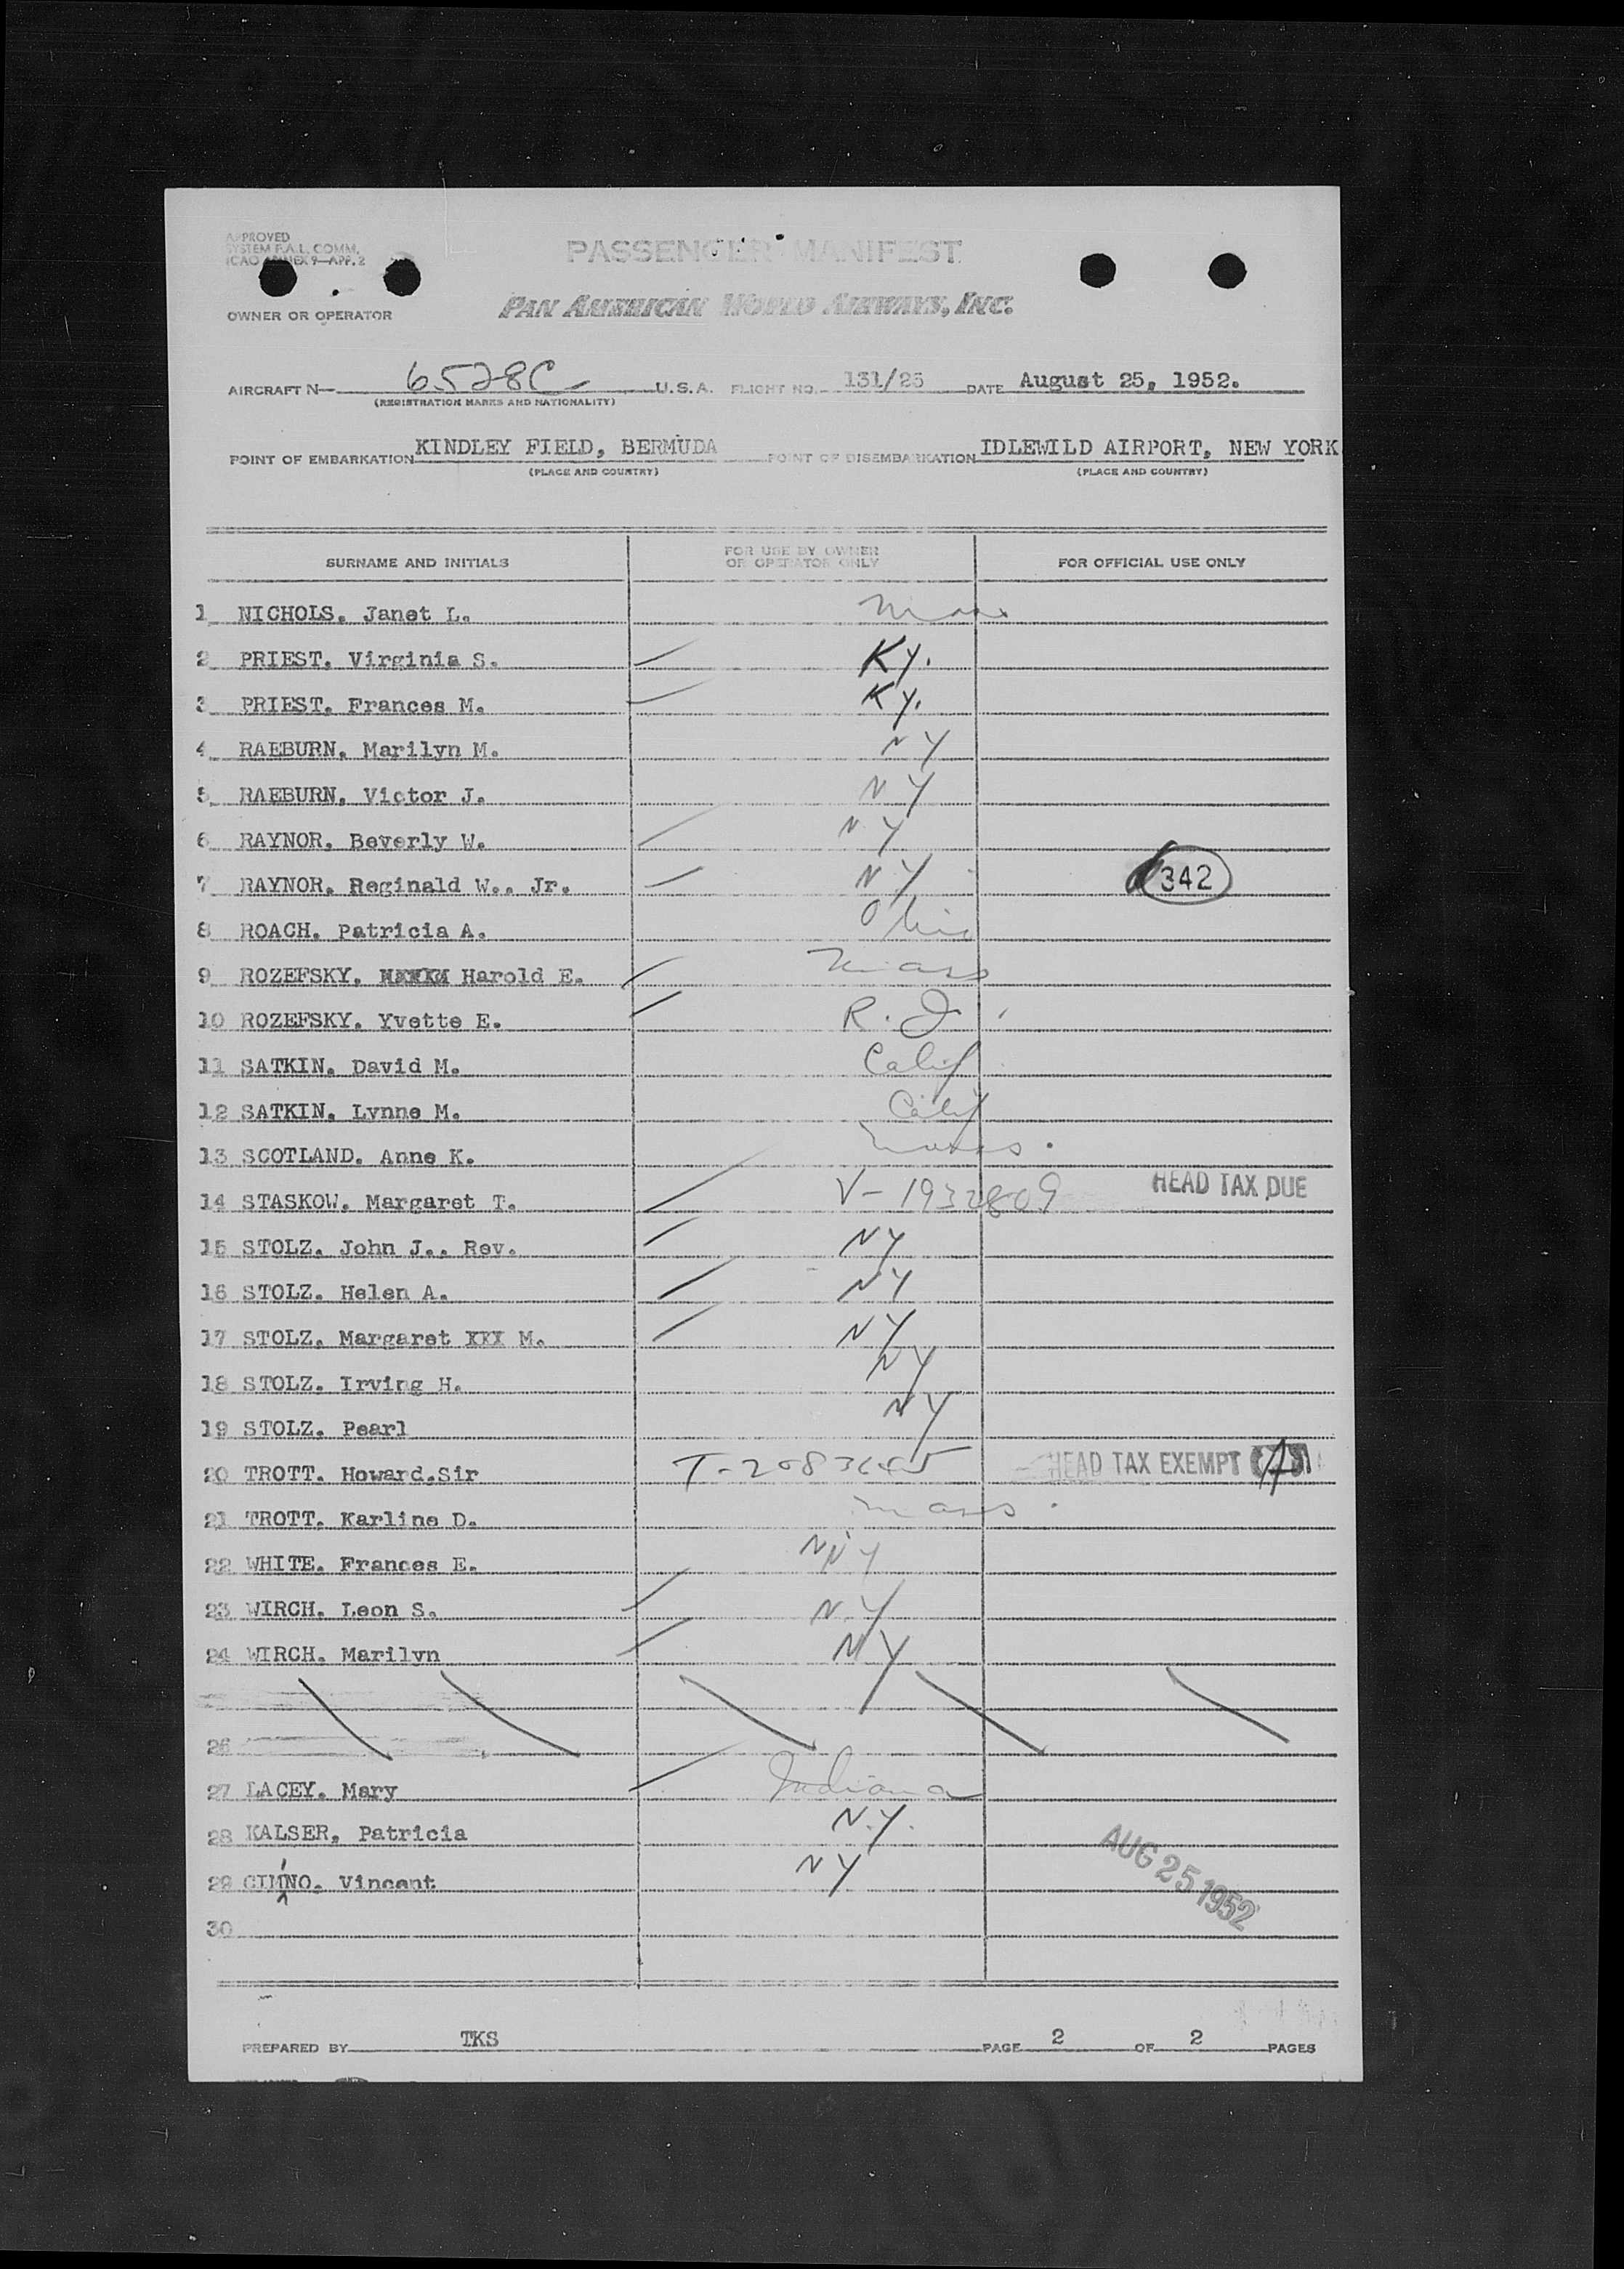 APPROVED
SYSTEM F.A.L. COMM.
ICAO ANNEX 9—APP. 2
PASSENGER MANIFEST
OWNER OR OPERATOR PAN AMERICAN WORLD AIRWAYS, INC.
AIRCRAFT N— 6528C U.S.A. FLIGHT NO. 131/25 DATE August 25, 1952.
(REGISTRATION MARKS AND NATIONALITY)
POINT OF EMBARKATION KINDLEY FIELD, BERMUDA POINT OF DISEMBARKATION IDLEWILD AIRPORT, NEW YORK
(PLACE AND COUNTRY) (PLACE AND COUNTRY)
SURNAME AND INITIALS FOR USE BY OWNER OR OPERATOR ONLY FOR OFFICIAL USE ONLY
1 NICHOLS. Janet L. Mass
2 PRIEST. Virginia S. Ky.
3 PRIEST. Frances M. Ky.
4 RAEBURN. Marilyn M. NY
5 RAEBURN. Victor J. NY
6 RAYNOR. Beverly W. NY
7 RAYNOR. Reginald W.. Jr. NY 342
8 ROACH. Patricia A. Ohio
9 ROZEFSKY. Harold E. Mass
10 ROZEFSKY. Yvette E. R.I.
11 SATKIN. David M. Calif
12 SATKIN. Lynne M. Calif
13 SCOTLAND. Anne K. Mass.
14 STASKOW. Margaret T. V-1932809 HEAD TAX DUE
15 STOLZ. John J.. Rev. NY
16 STOLZ. Helen A. NY
17 STOLZ. Margaret XXX M. NY
18 STOLZ. Irving H. NY
19 STOLZ. Pearl NY
20 TROTT. Howard.Sir T-2083645 HEAD TAX EXEMPT
21 TROTT. Karline D. Mass.
22 WHITE. Frances E. NY
23 WIRCH. Leon S. N.Y
24 WIRCH. Marilyn NY
26
27 LACEY. Mary Indiana
28 KALSER, Patricia N.Y.
29 Vincent NY
AUG 25 1952
30
PREPARED BY TKS PAGE 2 OF 2 PAGES